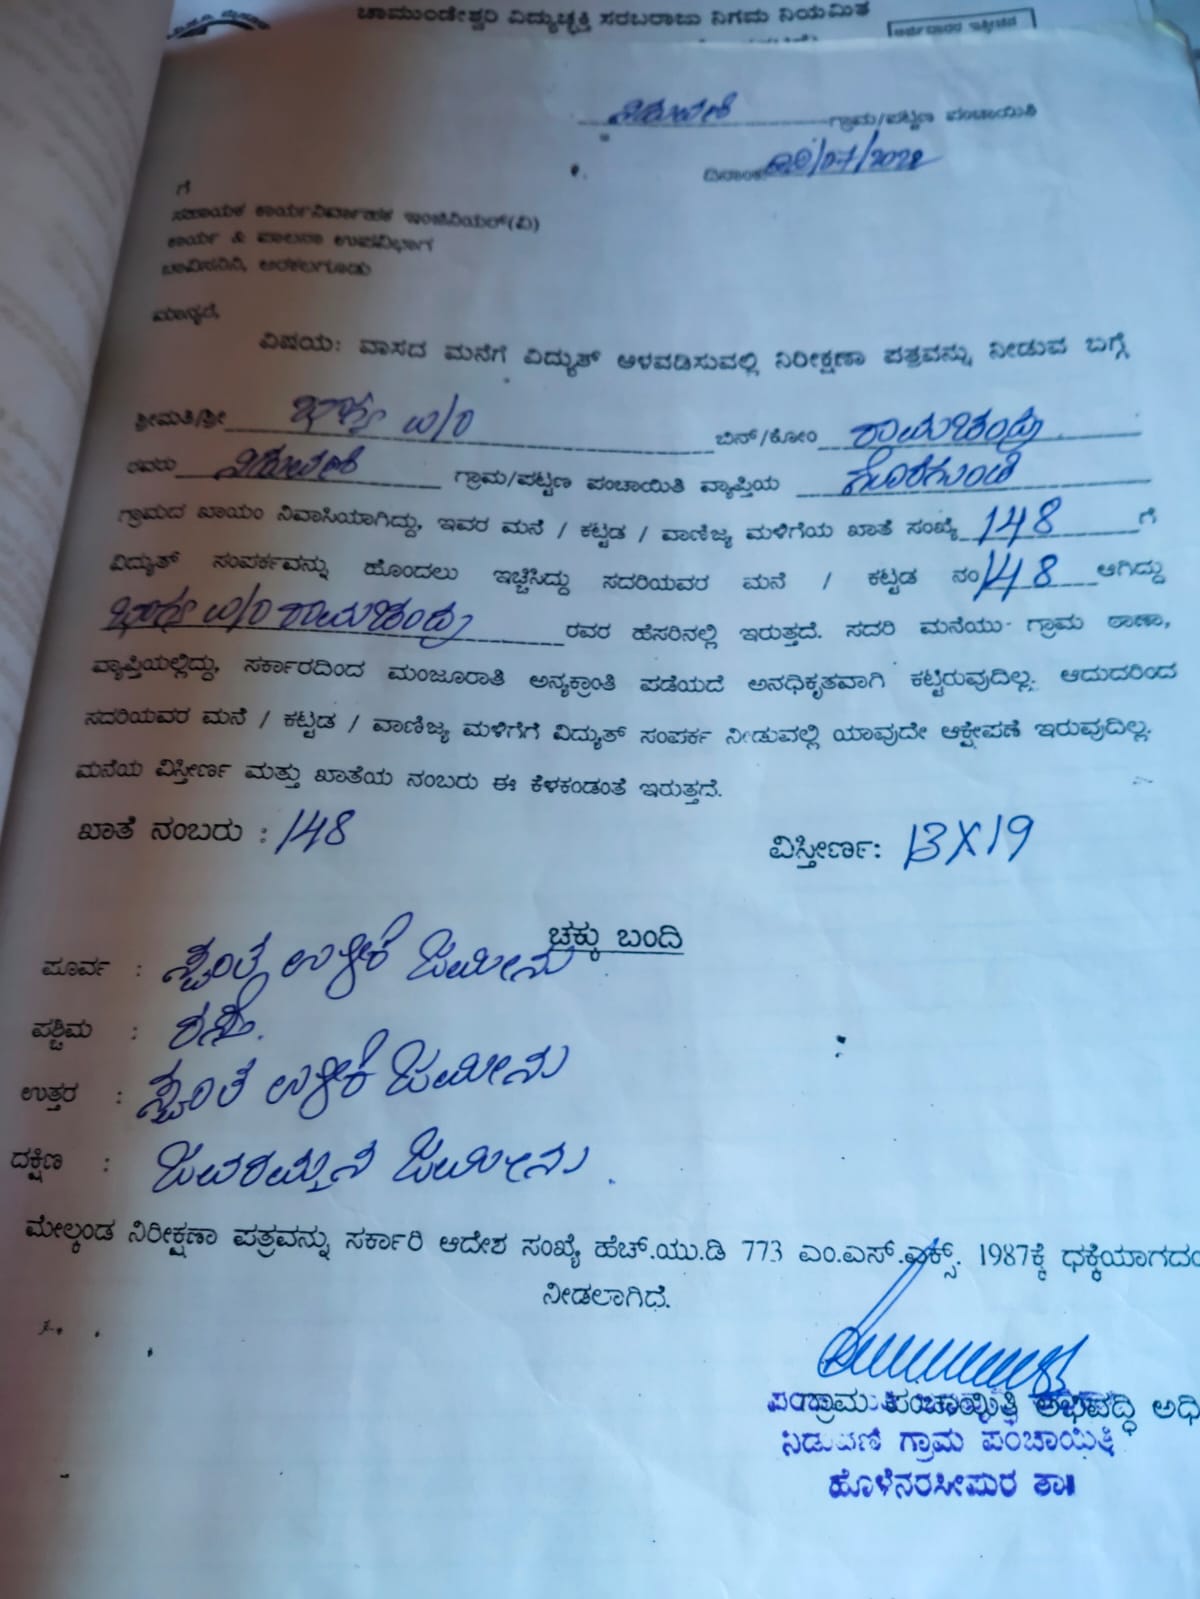 ಚಾಮುಂಡೇಶ್ವರಿ ವಿದ್ಯುಚ್ಛಕ್ತಿ ಸರಬರಾಜು ನಿಗಮ ನಿಯಮಿತ
ನಿಡುವಣಿ ಗ್ರಾಮ/ಪಟ್ಟಣ ಪಂಚಾಯಿತಿ
ದಿನಾಂಕ /07/2022
ಗೆ
ಸಹಾಯಕ ಕಾರ್ಯನಿರ್ವಾಹಕ ಇಂಜಿನಿಯರ್(ವಿ)
ಕಾರ್ಯ & ಪಾಲನಾ ಉಪವಿಭಾಗ
ಚಾವಿಸನಿನಿ, ಅರಕಲಗೂಡು
ಮಾನ್ಯರೆ,
ವಿಷಯ: ವಾಸದ ಮನೆಗೆ ವಿದ್ಯುತ್ ಅಳವಡಿಸುವಲ್ಲಿ ನಿರೀಕ್ಷಣಾ ಪತ್ರವನ್ನು ನೀಡುವ ಬಗ್ಗೆ
ಶ್ರೀಮತಿ/ಶ್ರೀ ಭಾಗ್ಯ W/O ಬಿನ್/ಕೋಂ ರಾಮಚಂದ್ರ
ರವರು ನಿಡುವಣಿ ಗ್ರಾಮ/ಪಟ್ಟಣ ಪಂಚಾಯಿತಿ ವ್ಯಾಪ್ತಿಯ ಗೊರಗುಂಡಿ
ಗ್ರಾಮದ ಖಾಯಂ ನಿವಾಸಿಯಾಗಿದ್ದು, ಇವರ ಮನೆ / ಕಟ್ಟಡ / ವಾಣಿಜ್ಯ ಮಳಿಗೆಯ ಖಾತೆ ಸಂಖ್ಯೆ 148 ಗೆ
ವಿದ್ಯುತ್ ಸಂಪರ್ಕವನ್ನು ಹೊಂದಲು ಇಚ್ಚಿಸಿದ್ದು ಸದರಿಯವರ ಮನೆ / ಕಟ್ಟಡ ನಂ 148 ಆಗಿದ್ದು
ಭಾಗ್ಯ W/O ರಾಮಚಂದ್ರ ರವರ ಹೆಸರಿನಲ್ಲಿ ಇರುತ್ತದೆ. ಸದರಿ ಮನೆಯು ಗ್ರಾಮ ಠಾಣಾ,
ವ್ಯಾಪ್ತಿಯಲ್ಲಿದ್ದು, ಸರ್ಕಾರದಿಂದ ಮಂಜೂರಾತಿ ಅನ್ಯಕ್ರಾಂತಿ ಪಡೆಯದೆ ಅನಧಿಕೃತವಾಗಿ ಕಟ್ಟಿರುವುದಿಲ್ಲ. ಆದುದರಿಂದ
ಸದರಿಯವರ ಮನೆ / ಕಟ್ಟಡ / ವಾಣಿಜ್ಯ ಮಳಿಗೆಗೆ ವಿದ್ಯುತ್ ಸಂಪರ್ಕ ನೀಡುವಲ್ಲಿ ಯಾವುದೇ ಆಕ್ಷೇಪಣೆ ಇರುವುದಿಲ್ಲ.
ಮನೆಯ ವಿಸ್ತೀರ್ಣ ಮತ್ತು ಖಾತೆಯ ನಂಬರು ಈ ಕೆಳಕಂಡಂತೆ ಇರುತ್ತದೆ.
ಖಾತೆ ನಂಬರು : 148 ವಿಸ್ತೀರ್ಣ: 13X19
ಚಕ್ಕು ಬಂದಿ
ಪೂರ್ವ : ಸ್ವಂತ ಉಳಿಕೆ ಜಮೀನು
ಪಶ್ಚಿಮ : ರಸ್ತೆ.
ಉತ್ತರ : ಸ್ವಂತ ಉಳಿಕೆ ಜಮೀನು
ದಕ್ಷಿಣ : ಜವರಮ್ಮನ ಜಮೀನು.
ಮೇಲ್ಕಂಡ ನಿರೀಕ್ಷಣಾ ಪತ್ರವನ್ನು ಸರ್ಕಾರಿ ಆದೇಶ ಸಂಖ್ಯೆ ಹೆಚ್.ಯು.ಡಿ 773 ಎಂ.ಎಸ್.ಎಕ್ಸ್. 1987ಕ್ಕೆ ಧಕ್ಕೆಯಾಗದಂ
ನೀಡಲಾಗಿದೆ.
ಗ್ರಾಮ ಪಂಚಾಯಿತಿ ಅಭಿವೃದ್ಧಿ ಅಧಿ
ನಿಡುವಣಿ ಗ್ರಾಮ ಪಂಚಾಯಿತಿ
ಹೊಳೆನರಸೀಪುರ ತಾ॥